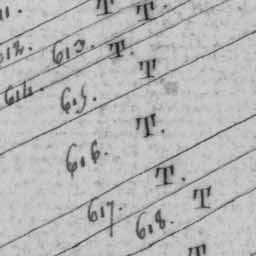 11. T
612. 613. T.
614. T.
615. T
616. T.
617. T.
618. T
T